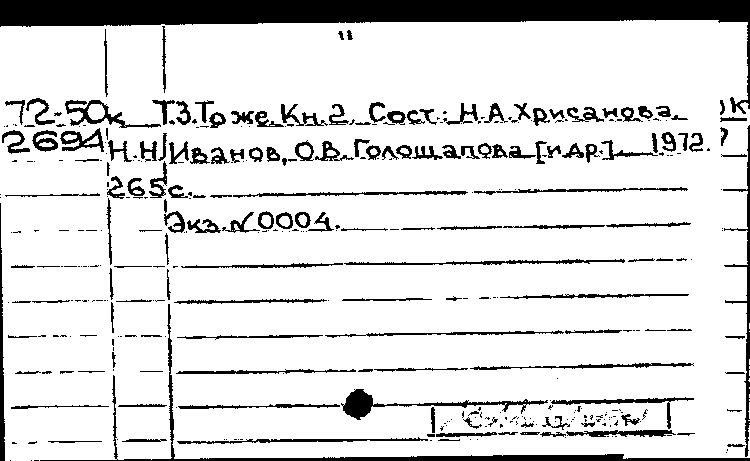 "
72-50к Т.3. То же. Кн. 2. Сост.: Н.А. Хрисанова.
2694 Н.Н. Иванов, О.В. Голощапова [и др.]. 1972.
265 с.
Экз. № 0004.